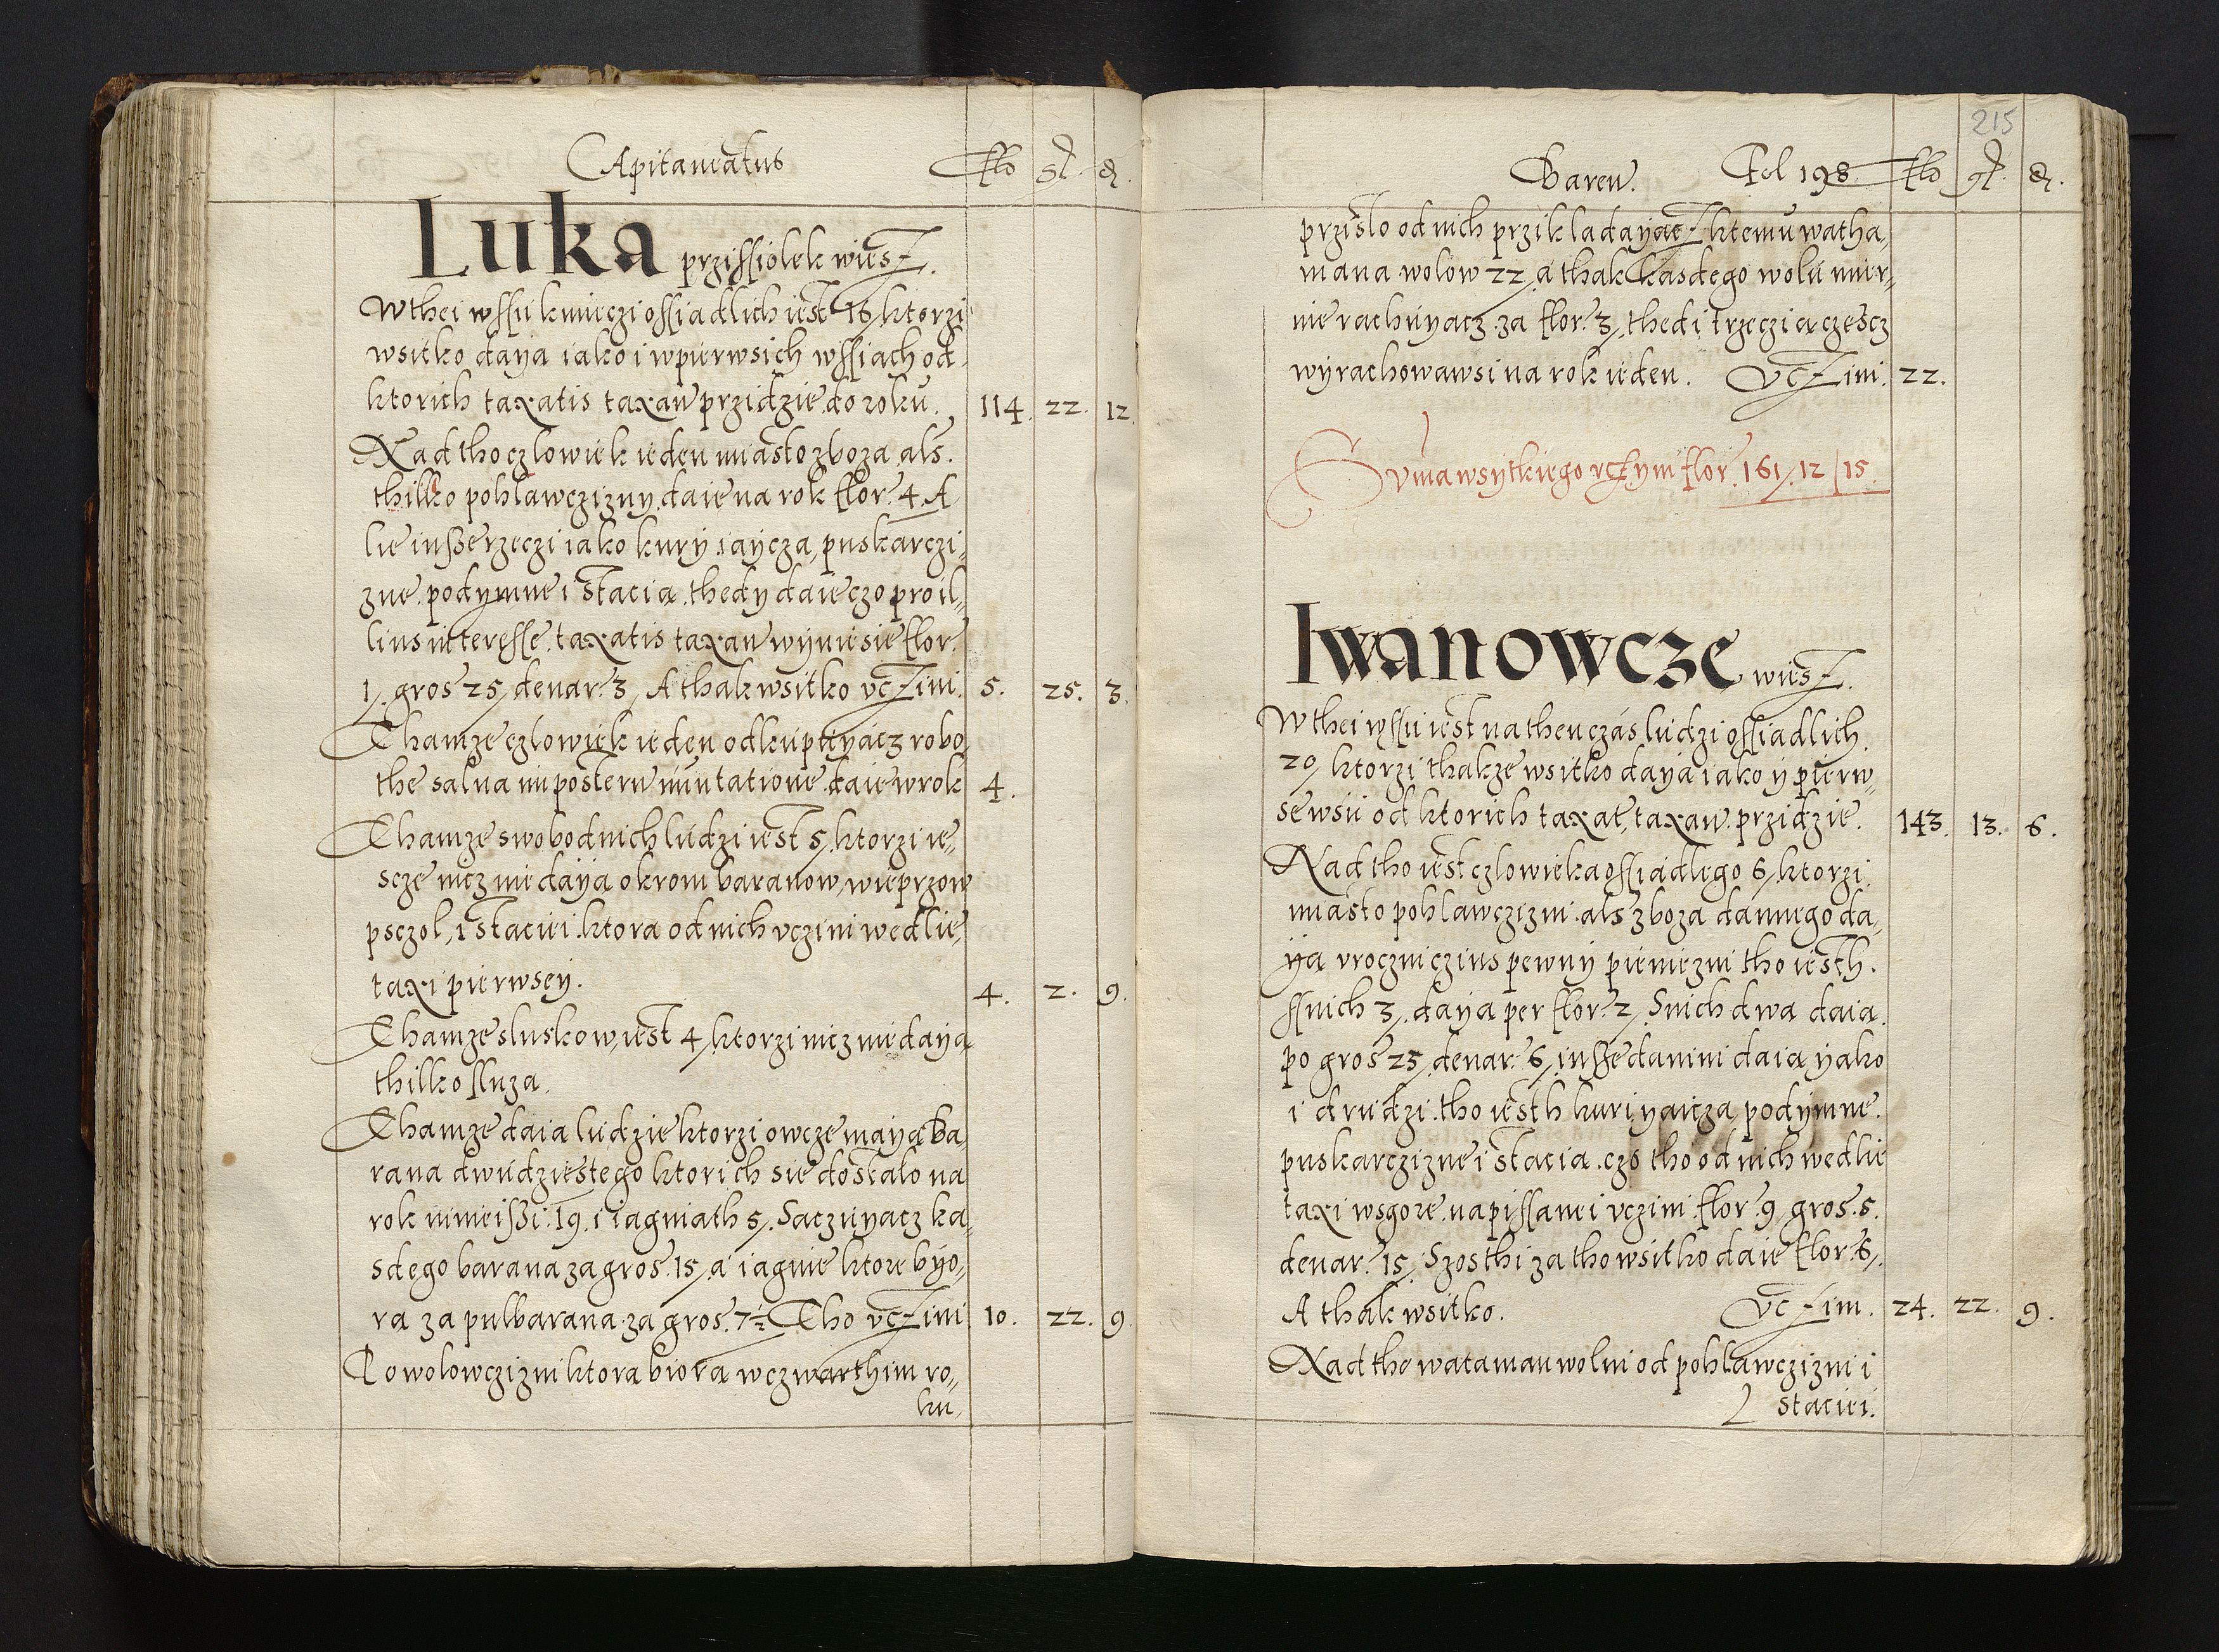 Capitaneatus flo gr. d.
Luka przissiolek wiesz.
W thei wssii kmieczi ossiadlich iest 16, ktorzi
wsitko daya iako i w pierwsich wssiach od
ktorich taxatis taxan. przidzie do roku. 114. 22. 12
Nad tho czlowiek ieden miasto zboza als.
thilko pohlawczizny daie na rok flor. 4. A
lie insze rzeczi iako kury, iaycza, puskarczi„
zne. podymne i stacia. thedy daie czo pro il„
lius interesse. taxatis taxan. wyniesie flor.
1/. gros 25/ denar. 3/ A thak wsitko uczini. 5. 25. 3.
Thamze czlowiek ieden odkupuyacz robo„
the salua in posterum mutatione. daie w rok 4.
Thamze swobodnich ludzi iest 5/. ktorzi ie„
scze nicz nie daya okrom baranow, wieprzow
psczol, i staciei. ktora od nich vczini wedlie
taxi pierwsey. 4. 2. 9.
Thamze sluskow, iest 4/ ktorzi nicz nie daya
thilko sluza.
Thamze daia ludzie ktorzi owcze maya Ba„
rana dwudziestego ktorich sie dostalo na
rok ninieiszi. 19. i iagniath 5/. Saczuyacz ka„
sdego barana za gros. 15/ a iagnie ktore byo„
ra za pulbarana. za gros. 7½ Tho uczini 10. 22. 9
Powolowczizni ktora biora w czwarthim ro„
ku.
215
Baren. Fol 198. flo gr. d.
przislo od nich przikladayacz ktemu watha„
mana wolow 22/ a thak kasdego wolu mier„
nie rachuyacz. za flor. 3/, thedi trzeczia czescz
wyrachowawsi na rok ieden. Uczini. 22.
Suma wsytkiego uczyni flor. 161/. 12/15.
Iwanowcze wiesz.
W thei wssii iest na then czas ludzi ossiadlich.
20/ ktorzi thakze wsitko daya iako y pierw„
se wsii od ktorich taxat, taxan. przidzie. 143. 13. 6.
Nad tho iest czlowieka ossiadlego 6/. ktorzi.
miasto pohlawczizni. als zboza dannego da„
ya vroczni czins pewny pieniezni tho iesth.
s nich 3/. daya per flor. 2/. S nich dwa daia.
po gros 25/. denar. 6/. insze danini daia yako
i drudzi. tho iesth kuri, yaicza, podymne.
puskarczizne i stacia. czo tho od nich wedlie
taxi w sgore. napissanei vczini. flor. 9 gros. 5.
denar. 15/. Szosthi za tho wsitko daie flor. 6/.
A thak wsitko. Uczini. 24. 22. 9.
Nad tho wataman wolni od pohlawczizni i
staciei.